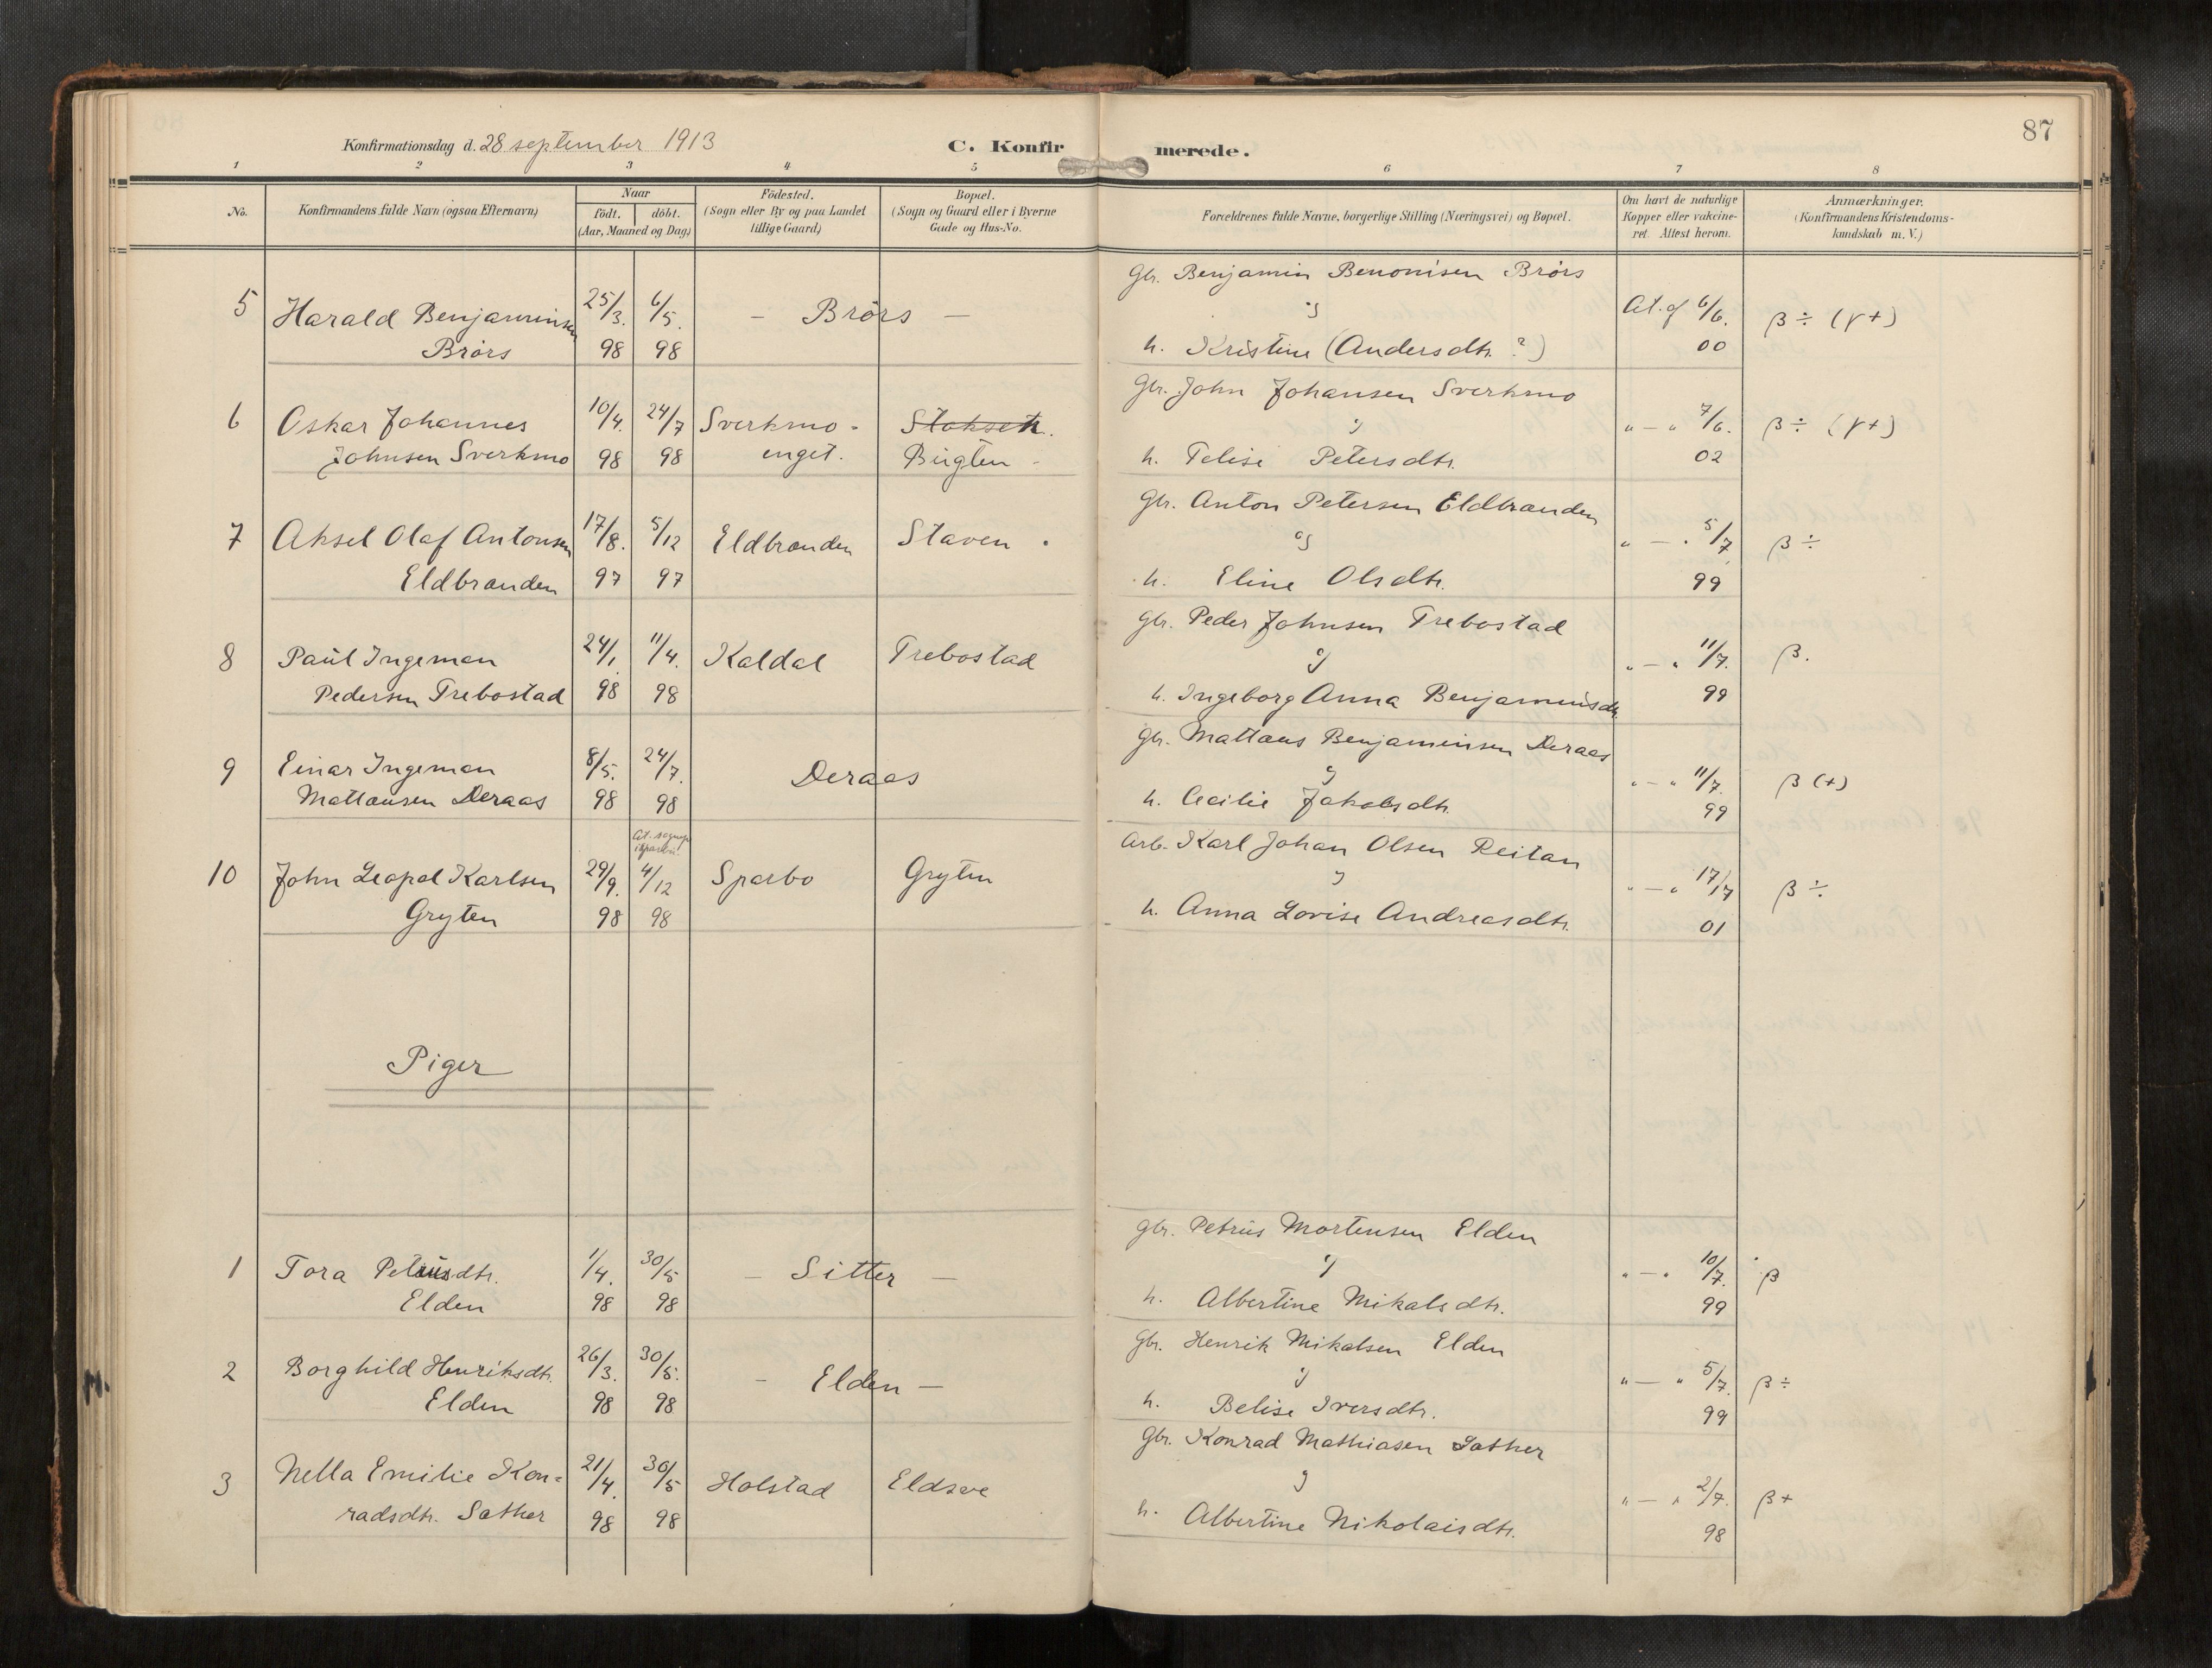 87
Konfirmationsdag d. 28 september 1913
C. Konfirmerede.
1 2 3 4 5 6 7 8
No.
Konfirmandens fulde Navn (ogsaa Efternavn)
Naar
født. døbt.
(Aar, Maaned og Dag)
Fødested.
(Sogn eller By og paa Landet
tillige Gaard)
Bopæl.
(Sogn og Gaard eller i Byerne
Gade og Hus-No.
Forældrenes fulde Navne, borgerlige Stilling (Næringsvei) og Bopæl.
Om havt de naturlige
Kopper eller vakcine-
ret. Attest herom.
Anmærkninger.
(Konfirmandens Kristendoms-
kundskab m. V.)
Gbr. Benjamin Benonisen Brörs
5 Harald Benjaminsen 25/3. 6/5. – Brörs – og At. af 6/6. β ÷ (γ+)
Brörs 98 98 h. Kristine (Andersdtr. ?) 00
Gbr. John Johansen Sverkmo
6 Oskar Johannes 10/4. 24/7 Sverkmo- Stokset. og " – " 7/6. β ÷ (γ+)
Johnsen Sverkmo 98 98 enget. Bügten h. Telise Petersdtr. 02
Gbr. Anton Petersen Eldbranden
7 Aksel Olaf Antonsen 17/8. 5/12 Eldbranden Staven . og " – " 5/7 β ÷
Eldbranden 97 97 h. Eline Olsdtr. 99
Gbr. Peder Johnsen Trebostad
8 Paül Ingeman 24/1. 11/4. Kaldal Trebostad og " – " 11/7. β.
Pedersen Trebostad 98 98 h. Ingeborg Anna Benjaminsdtr. 99
Gbr. Mattæus Benjaminsen Deraas
9 Einar Ingeman 8/5. 24/7. Deraas og " – " 11/7. β (+)
Mattæusen Deraas 98 98 h. Cecilie Jakobsdtr. 99
At.
Arb. Karl Johan Olsen Reitan
10 John Leopol Karlsen 29/9. 4/12 Sparbo Gryten og " – " 17/7 β ÷
Gryten 98 98 h. Anna Lovise Andreasdtr. 01
Piger
Gbr. Petrüs Mortensen Elden
1 Tora Petrüsdtr. 1/4. 30/5 – Sitter – og " – " 10/7. β
Elden 98 98 h. Albertine Mikalsdtr. 99
Gbr. Henrik Mikalsen Elden
2 Borghild Henriksdtr. 26/3. 30/5. – Elden – og " – " 5/7. β ÷
Elden 98 98 h. Belise Iversdtr. 99
Gbr. Konrad Mathiasen Sæther
3 Nella Emilie Kon= 21/4. 30/5 Holstad Eldsve og " – " 2/7. β +
radsdtr. Sæther 98 98 h. Albertine Nikolaisdtr. 98